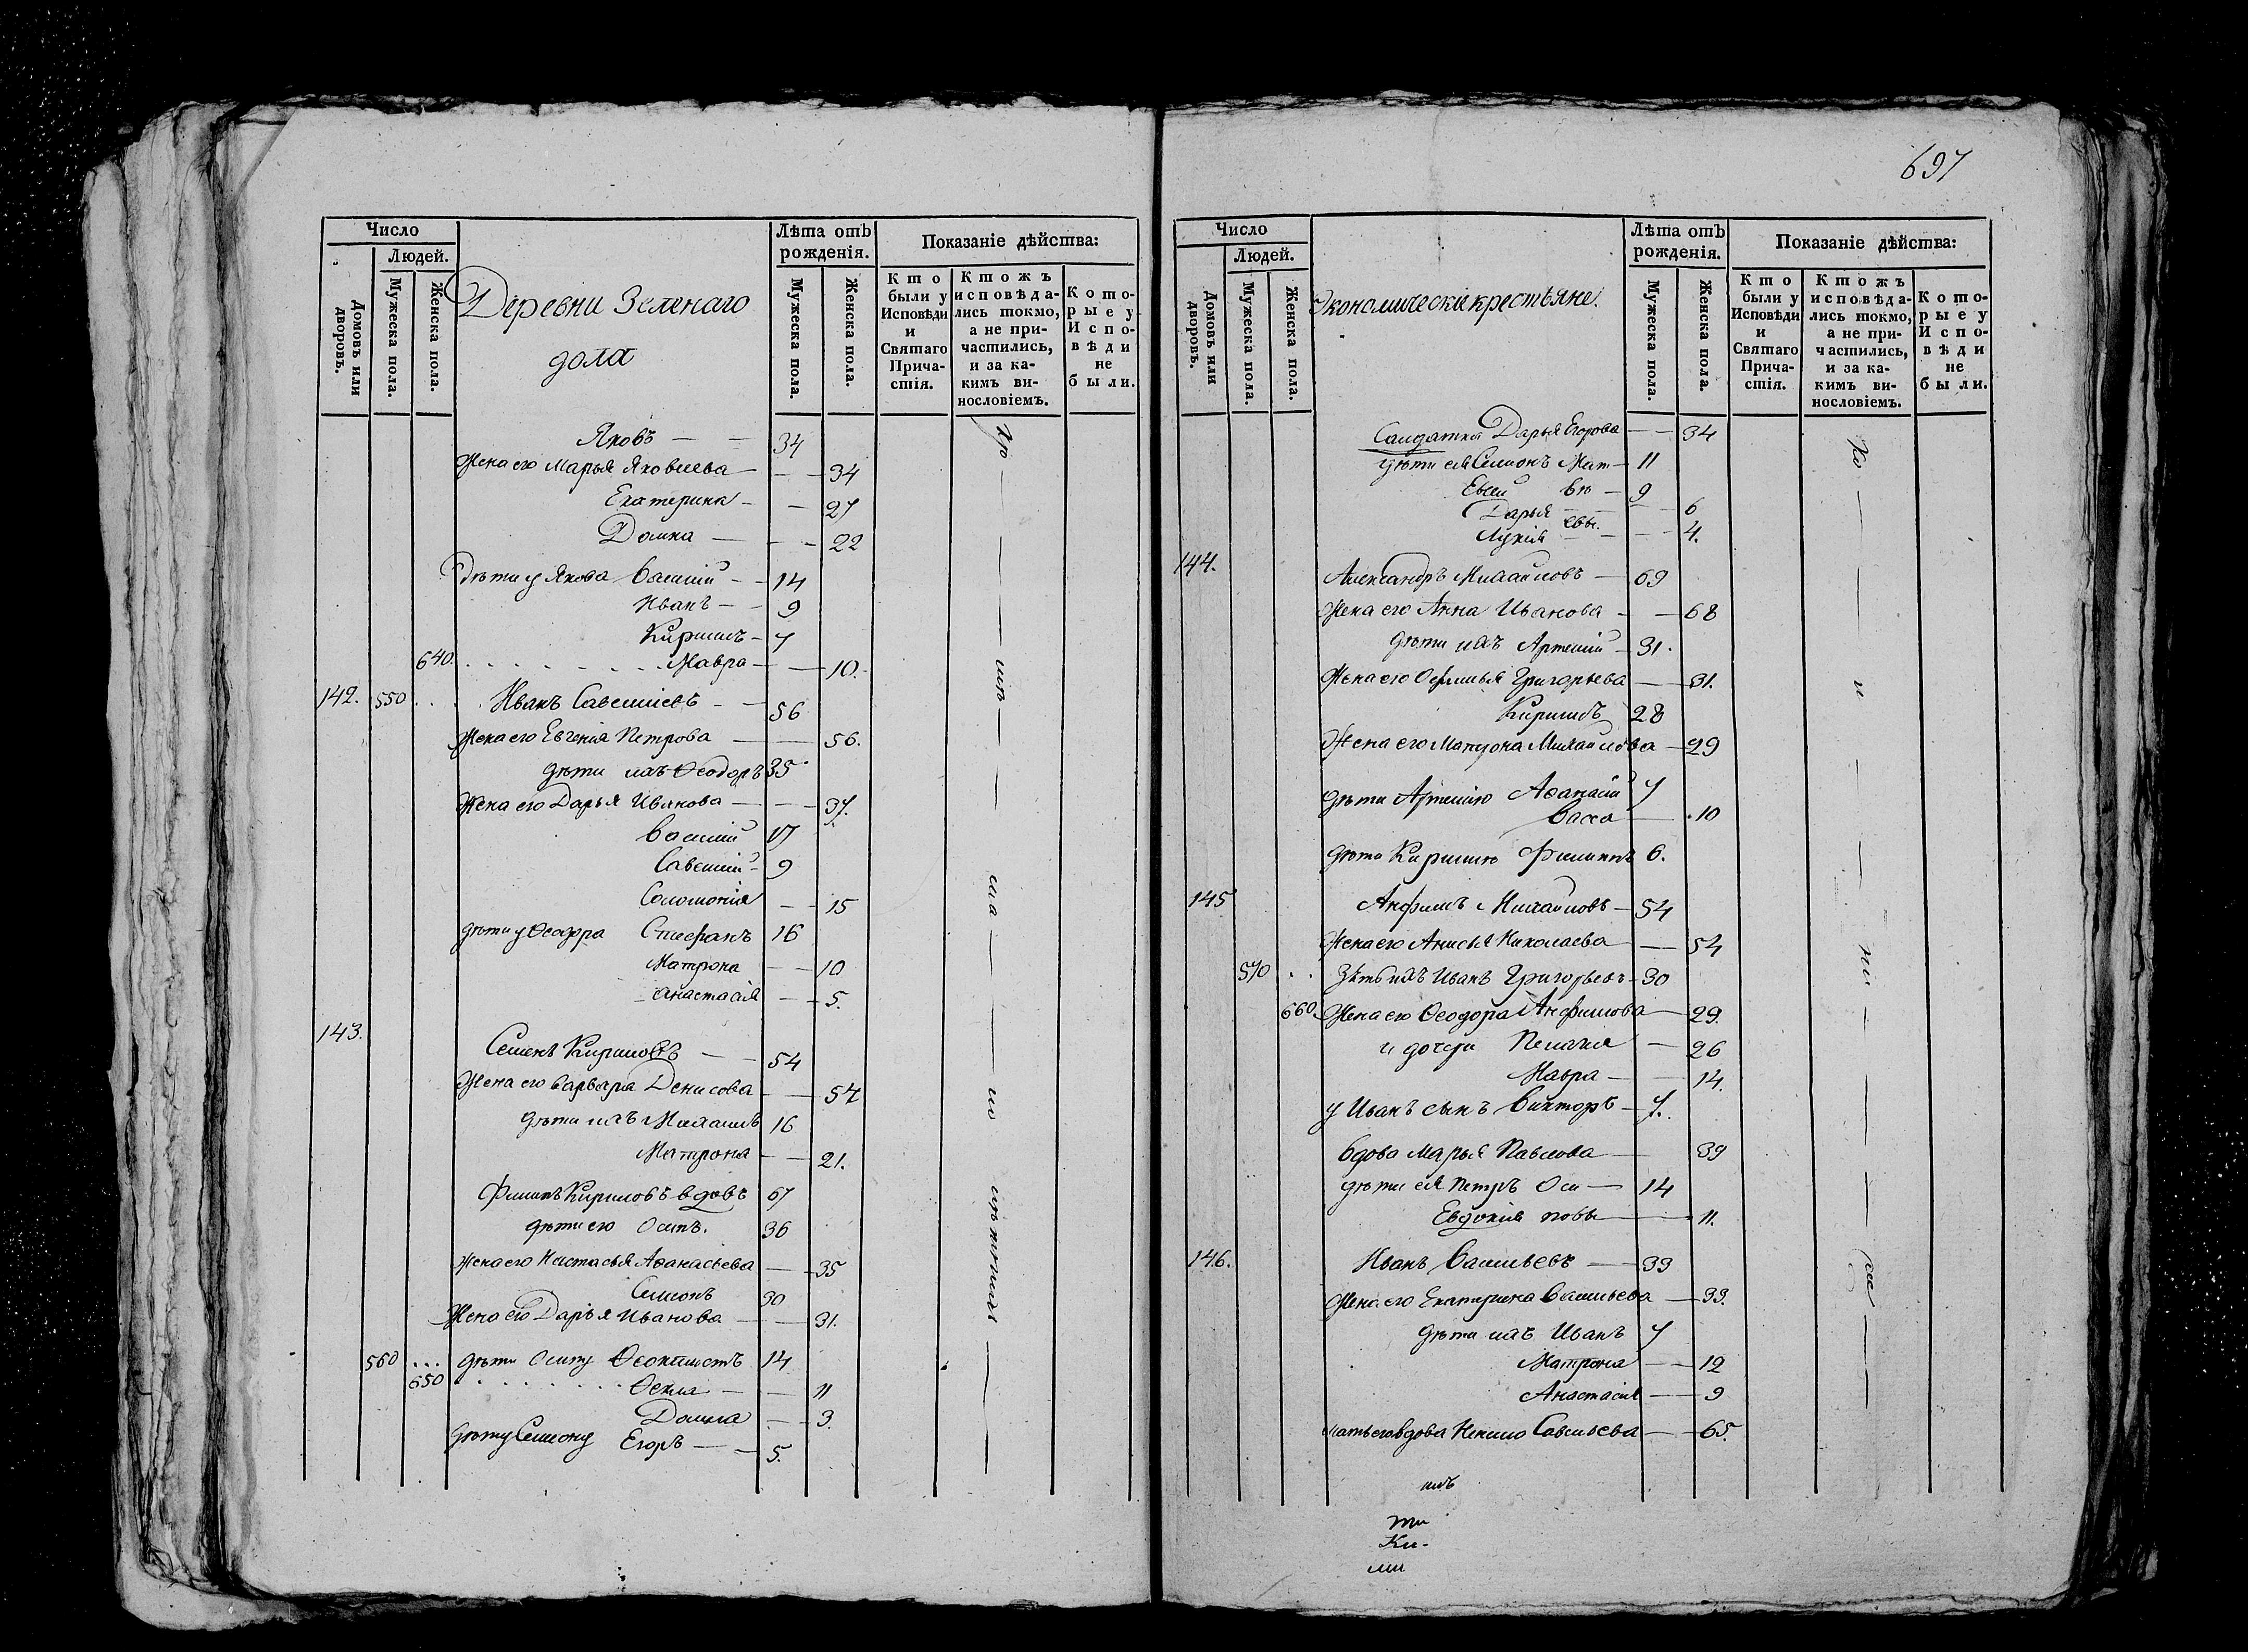 697
Число
Людей.
Домовъ или дворовъ.
Мужеска пола.
Женска пола.
Деревни Зеленаго
дола
Лѣта отъ рожденія.
Мужеска пола.
Женска пола.
Показаніе дѣйства:
Кто были у Исповѣди и Святаго Причастія.
Ктожъ исповѣдались токмо, а не причастились, и за какимъ винословіемъ.
Которые у Исповѣди не были.
Яковъ — — 34
Жена его Марья Яковлева — 34
Екатерина — 27
Домна — 22
Дѣти у Якова Василій — 14
Иванъ — 9
Кирилъ — 7
640. Мавра — 10.
142. 550 Иванъ Савельевъ — 56
Жена его Евгенія Петрова — 56.
дѣти ихъ Ѳеодоръ 35
Жена его Дарья Иванова — 37.
Василій 17
Савелій 9
Соломонія — 15
дѣти у Ѳеодора Стефанъ 16
Матрона — 10
Анастасія — 5.
143. Семенъ Кириловъ — 54
Жена его Варвара Денисова — 54
дѣти ихъ Михаилъ 16
Матрона — 21.
Филипъ Кириловъ вдовъ 67
дѣти его Осипъ. 36
Жена его Настасья Аѳанасьева — 35
Симіонъ 30
Жена его Дарья Иванова — 31.
560 дѣти Осипу Ѳеоктистъ 14
650 Ѳекла — 11
Домна — 3.
Егоръ — 5.
Число
Людей.
Домовъ или дворовъ.
Мужеска пола.
Женска пола.
Экономическіе крестьяне.
Лѣта отъ рожденія.
Мужеска пола.
Женска пола.
Показаніе дѣйства:
Кто были у Исповѣди и Святаго Причастія.
Ктожъ исповѣдались токмо, а не причастились, и за какимъ винословіемъ.
Которые у Исповѣди не были.
Салдатка Дарья Егорова — 34
дѣти ея Симіонъ Мат — 11
Евсей вѣ — 9
Дарья — 6
евы.
Лукія — 4.
144. Александръ Михайловъ — 69
Жена его Анна Иванова — 68
дѣти ихъ Артемій — 31.
Жена его Григорьева — 31.
Кирилъ 28
Жена его Михайлова — 29
дѣти Артемію Аѳанасій 7
Васса — 10
дѣти Кирилю Филиппъ 6.
145 Анфимъ Михайловъ — 54
Жена его Анисья Николаева — 54
570 Зять ихъ Иванъ Григорьевъ — 30
660. Жена его Ѳеодора Анфимова — 29.
и дочери Пелагія — 26
Мавра — 14.
у Иванъ сынъ Викторъ — 7.
Вдова Марья Павлова — 39
дѣти ея Петръ Оси — 14
Евдокія повы — 11.
146. Иванъ Васильевъ — 33
Жена его Екатерина Васильева — 33.
дѣти ихъ Иванъ 7
Матрона — 12
Анастасія — 9
мать его вдова Савельева — 65.
ми